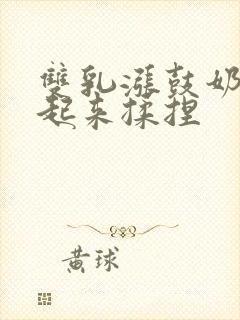 雙乳漲鼓奶
起来揉捏
黄球